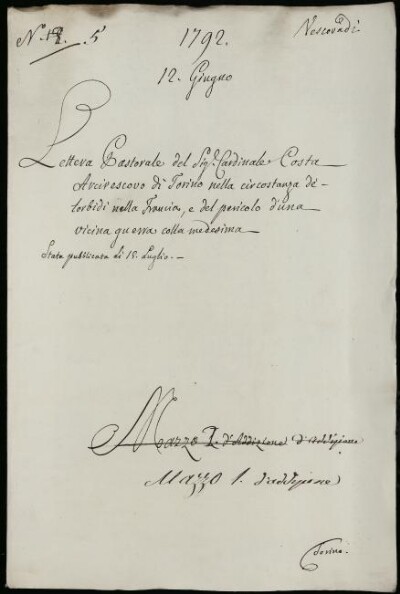 N. 12. 5
1792.
Vescovadi
12. Giugno
Lettera Pastorale del Sig.r Cardinale Costa
Arcivescovo di Torino nella circostanza de'
torbidi nella Francia, e del pericolo d'una
vicina guerra colla medesima
Stata pubblicata li 15. Luglio.
Mazzo I. d'Addizione d'addizione
Mazzo 1. d'addizione
Torino.